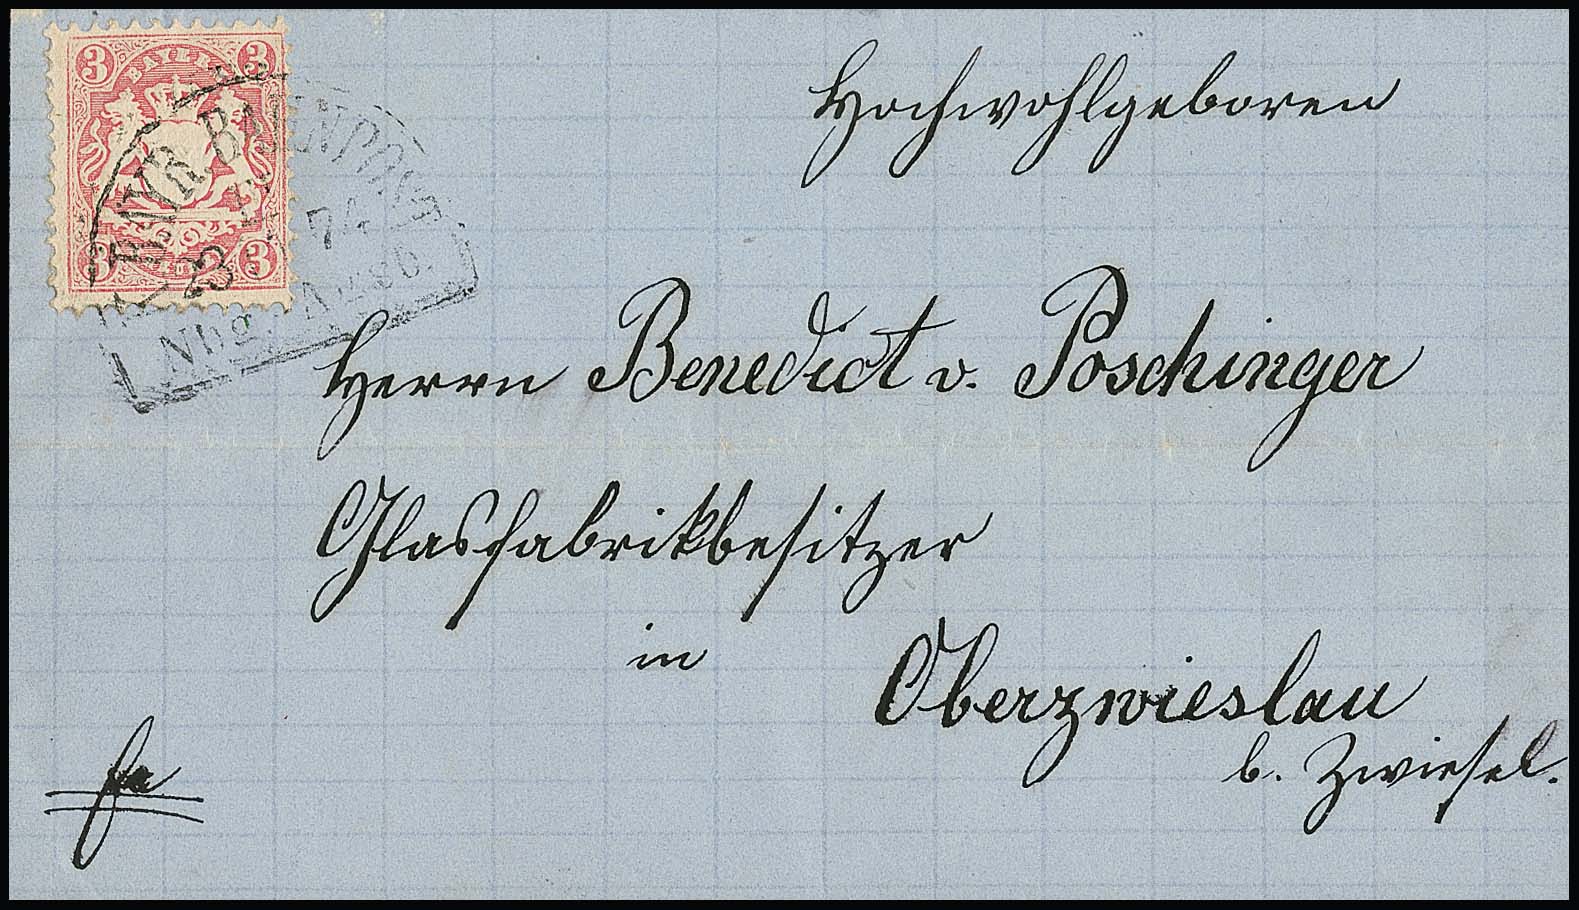 3 BAYERN 3
3 3
K. BAYR. BAHNPOST
23 74
Nbg. Augsb.
Hochwohlgeboren
Herrn Benedict v. Poschinger
Glasfabrikbesitzer
in
Oberzwieslau
b. Zwiesel.
fr